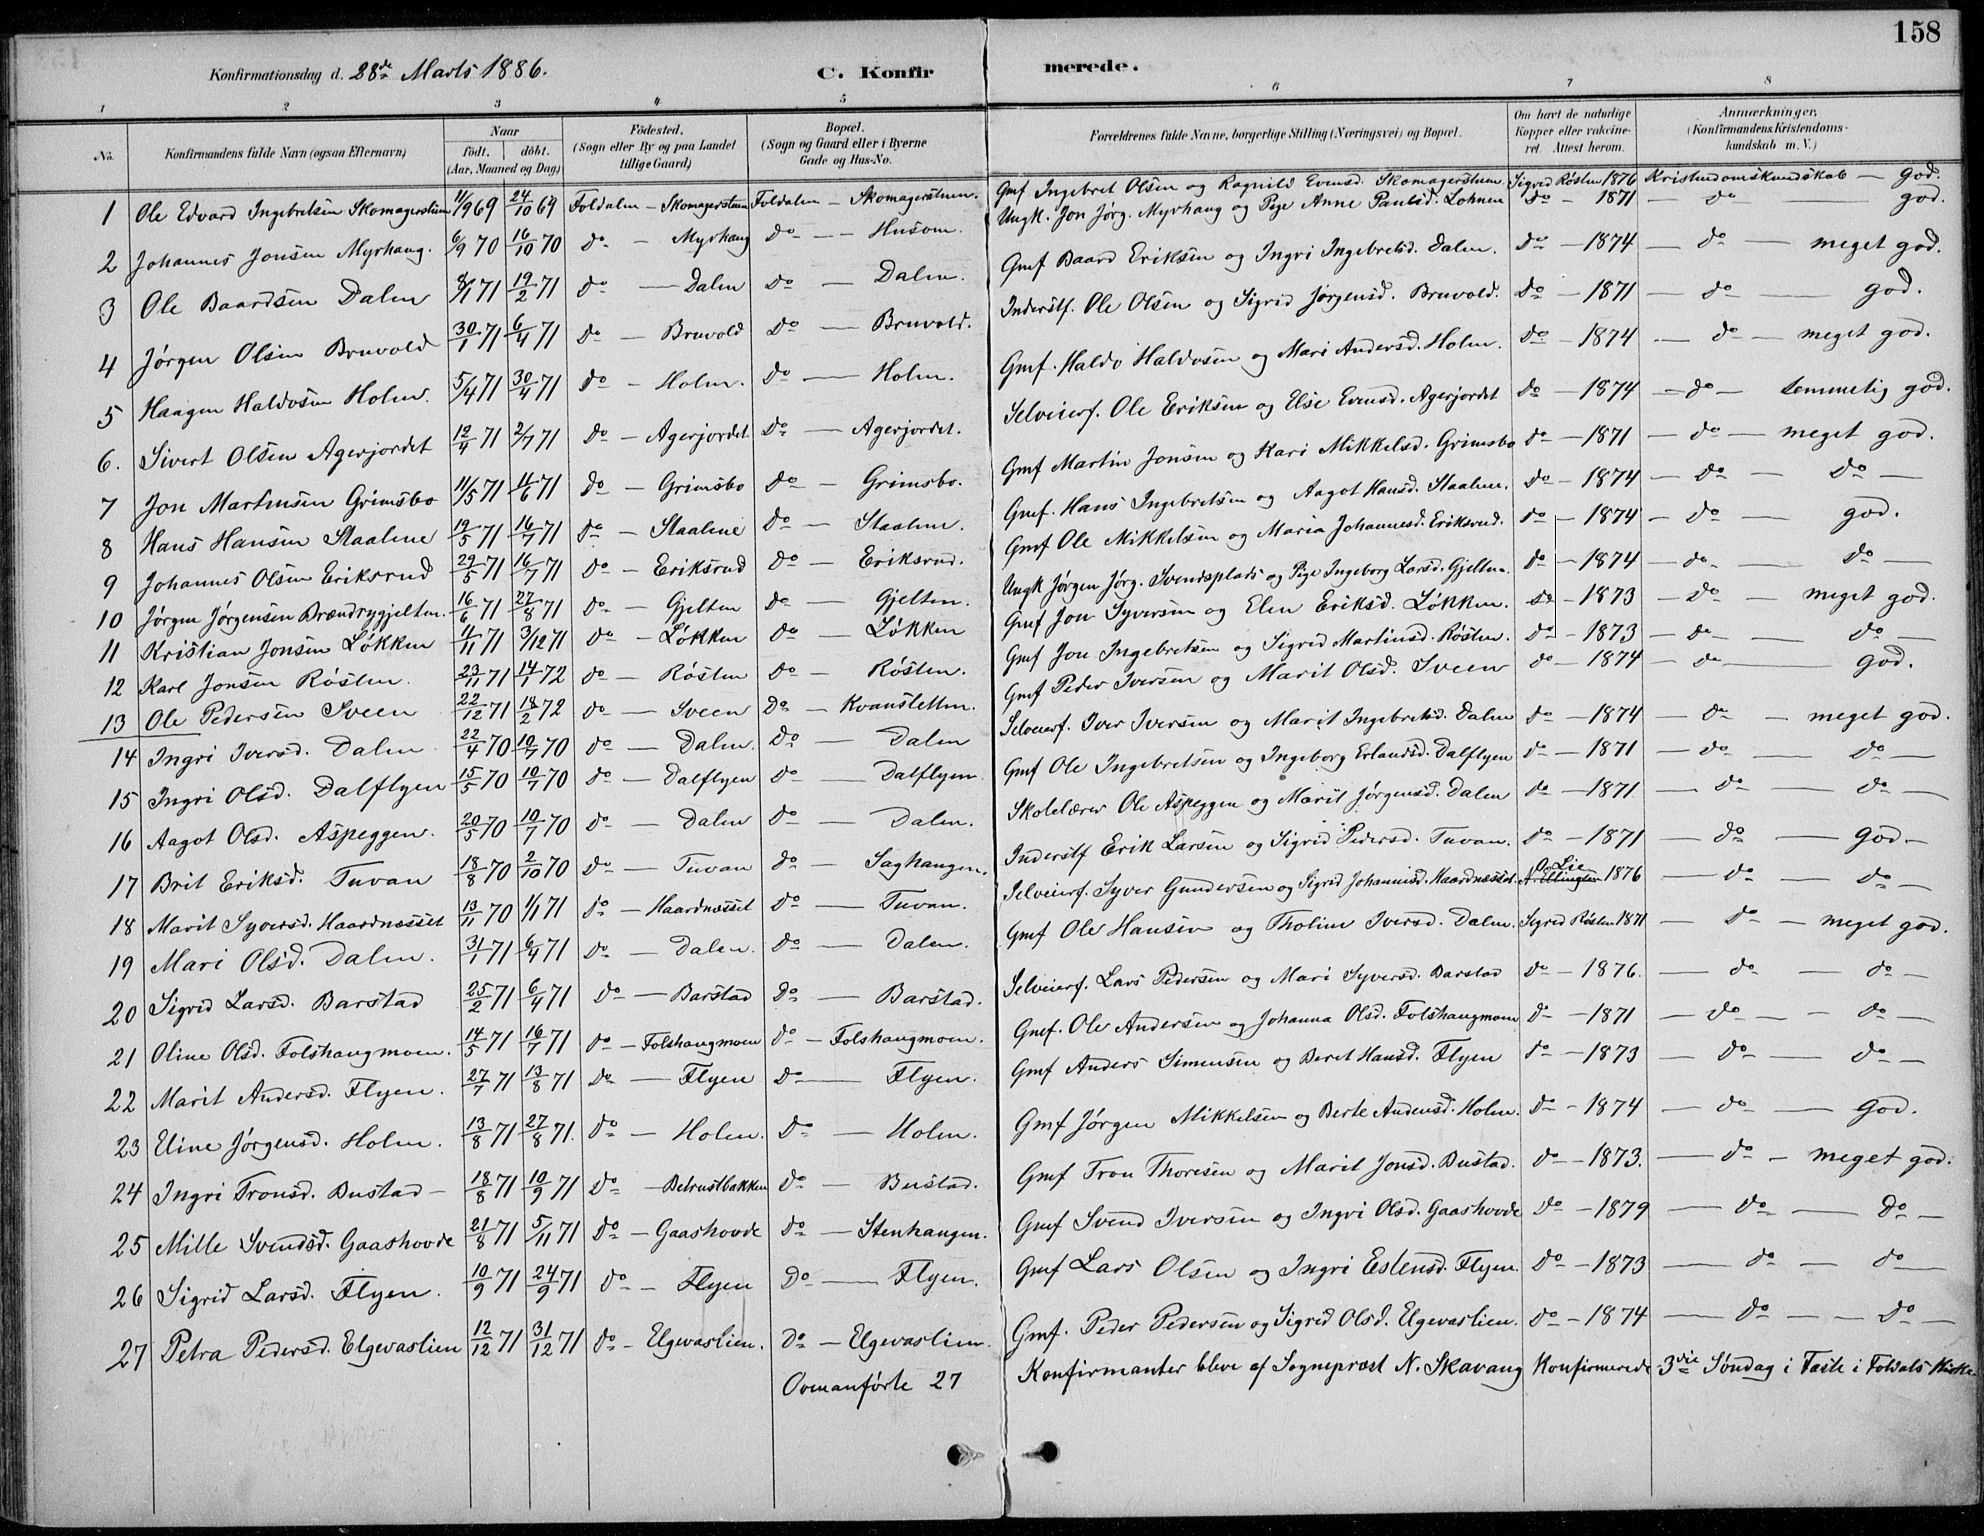 158
Konfirmationsdag d. 28de Marts 1886. C. Konfir merede.
1 2 3 4 5 6 7 8
No. Konfirmandens fulde Navn (ogsaa Efternavn) Naar født. døbt. (Aar, Maaned og Dag) Fødested. (Sogn eller By og paa Landet tillige Gaard) Bopæl. (Sogn og Gaard eller i Byerne Gade og Hus-No. Forældrenes fulde Navne, borgerlige Stilling (Næringsvei) og Bopæl. Om havt de naturlige Kopper eller vakcineret. Attest herom. Anmærkninger. (Konfirmandens Kristendomskundskab m. V.)
1 Ole Edvard Ingebretsen Skomagerstuen 11/9 69 24/10 69 Foldalen - Skomagerstuen Foldalen - Skomagerstuen. Gmf Ingebret Olsen og Ragnild Evensd. Skomagerstuen Sigrid Røsten 1876 Kristendomskundskab - god.
2 Johannes Jonsen Myrhaug. 6/9 70 16/10 70 do - Myrhaug do - - Husom. Ungk. Jon Jørg. Myrhaug og Pige Anne Paulsd. Lohnen do - 1871 - do - god.
3 Ole Baardsen Dalen 8/1 71 19/2 71 do - Dalen do - Dalen. Gmf Baard Eriksen og Ingri Ingebretsd. Dalen. do - 1874 - do - meget god.
4 Jørgen Olsen Bruvold 30/1 71 6/4 71 do - Bruvold do - Bruvold. Inderstf. Ole Olsen og Sigrid Jørgensd. Bruvold. do - 1871 - do - god.
5 Haagen Haldosen Holm. 5/4 71 30/4 71 do - Holm. do - Holm. Gmf. Haldo Haldosen og Mari Andersd. Holm. do - 1874 - do - meget god.
6. Sivert Olsen Agerjordet 12/4 71 2/7 71 do - Agerjordet. do - Agerjordet. Selveierf. Ole Eriksen og Else Evensd. Agerjordet do - 1874 - do - temmelig god.
7 Jon Martinsen Grimsbo 11/5 71 11/6 71 do - Grimsbo do - Grimsbo. Gmf Martin Jonsen og Kari Mikkelsd. Grimsbo do - 1871 - do - meget god.
8 Hans Hansen Staalene 19/5 71 16/7 71 do - Staalene do - Staalene. Gmf. Hans Ingebretsen og Aagot Hansd. Staalene. do - 1874 - do - do -
9 Johannes Olsen Eriksrud 29/5 71 16/7 71 do - Eriksrud do - Eriksrud. Gmf Ole Mikkelsen og Maria Johannesd. Eriksrud. do - 1874 - do - god.
10 Jørgen Jørgensen Brændrygjelten. 16/6 71 27/8 71 do - Gjelten do - Gjelten. Ungk Jørgen Jørg. Svendsplads og Pige Ingeborg Larsd. Gjelten do - 1874 - do - do -
11 Kristian Jonsen Løkken 4/11 71 3/12 71 do - Løkken do - Løkken Gmf Jon Syversen og Elen Eriksd. Løkken. do - 1873 - do - meget god.
12 Karl Jonsen Røsten. 23/11 71 14/1 72 do - Røsten do - Røsten. Gmf Jon Ingebretsen og Sigrid Martinsd. Røsten. do - 1873 - do - do -
13 Ole Pedersen Sveen 22/12 71 18/2 72 do - Sveen do - Kvansletten. Gmf Peder Iversen og Marit Olsd. Sveen do - 1874 - do - god.
14 Ingri Iversd. Dalen 22/4 70 10/7 70 do - Dalen. do - Dalen Selveierf. Iver Iversen og Marit Ingebretsd. Dalen do - 1874 - do - meget god.
15 Ingri Olsd. Dalflyen 15/5 70 10/7 70 do - Dalflyen do - Dalflyen. Gmf Ole Ingebretsen og Ingeborg Erlandsd. Dalflyen do - 1871 - do - do -
16 Aagot Olsd. Aspeggen. 20/5 70 10/7 70 do - Dalen do - Dalen. Skolelærer Ole Aspeggen og Marit Jørgensd. Dalen do - 1871 - do - do -
17 Brit Eriksd. Tuvan 18/8 70 2/10 70 do - Tuvan do - Saghaugen. Inderstf Erik Larsen og Sigrid Pedersd. Tuvan. do - 1871 - do - god -
18 Marit Syversd. Haardnæsset 13/11 70 1/1 71 do - Haardnæsset do - Tuvan. Selveierf. Syver Gundersen og Sigrid Johannesd. Haardnæsset. O. Lie 1876 - do - do -
19 Mari Olsd. Dalen. 31/1 71 6/4 71 do - Dalen. do - Dalen. Gmf Ole Hansen og Tholine Iversd. Dalen. Sigrid Røsten 1871 - do - meget god.
20 Sigrid Larsd. Barstad 25/2 71 6/4 71 do - Barstad do - Barstad. Selveierf. Lars Pedersen og Mari Syversd. Barstad do - 1876. - do - do -
21 Oline Olsd. Folshaugmoen. 14/5 71 16/7 71 do - Folshaugmoen do - Folshaugmoen. Gmf. Ole Andersen og Johanna Olsd. Folshaugmoen do - 1871 - do - do -
22 Marit Andersd. Flyen. 27/7 71 13/8 71 do - Flyen do - Flyen. Gmf Anders Simensen og Beret Hansd. Flyen do - 1873 - do - do -
23 Eline Jørgensd. Holen. 13/8 71 27/8 71. do - Holen. do - Holen. Gmf Jørgen Mikkelsen og Berte Andersd. Holen. do - 1874 - do - god.
24 Ingri Tronsd. Bustad - 18/8 71 10/9 71 do - Betrustbakken do - Bustad. Gmf Tron Thoresen og Marit Jonsd. Bustad. do - 1873. - do - meget god.
25 Mille Svendsd. Gaashovde 21/8 71 5/11 71 do - Gaashovde do - Stenhaugen. Gmf Svend Iversen og Ingri Olsd. Gaashovde do - 1879 - do - do -
26 Sigrid Larsd. Flyen. 10/9 71 24/9 71 do - Flyen do - Flyen. Gmf Lars Olsen og Ingri Estensd. Flyen. do - 1873 - do - do -
27 Petra Pedersd. Elgevaslien 12/12 71 31/12 71 do - Elgevaslien. do - Elgevaslien. Gmf. Peder Pedersen og Sigrid Olsd. Elgevaslien. do - 1874 - do - - do -
Ovenanførte 27 Konfirmanter bleve af Sogneprest N. Skavang Konfirmerede 3die Søndag i Faste i Foldals Kirke.